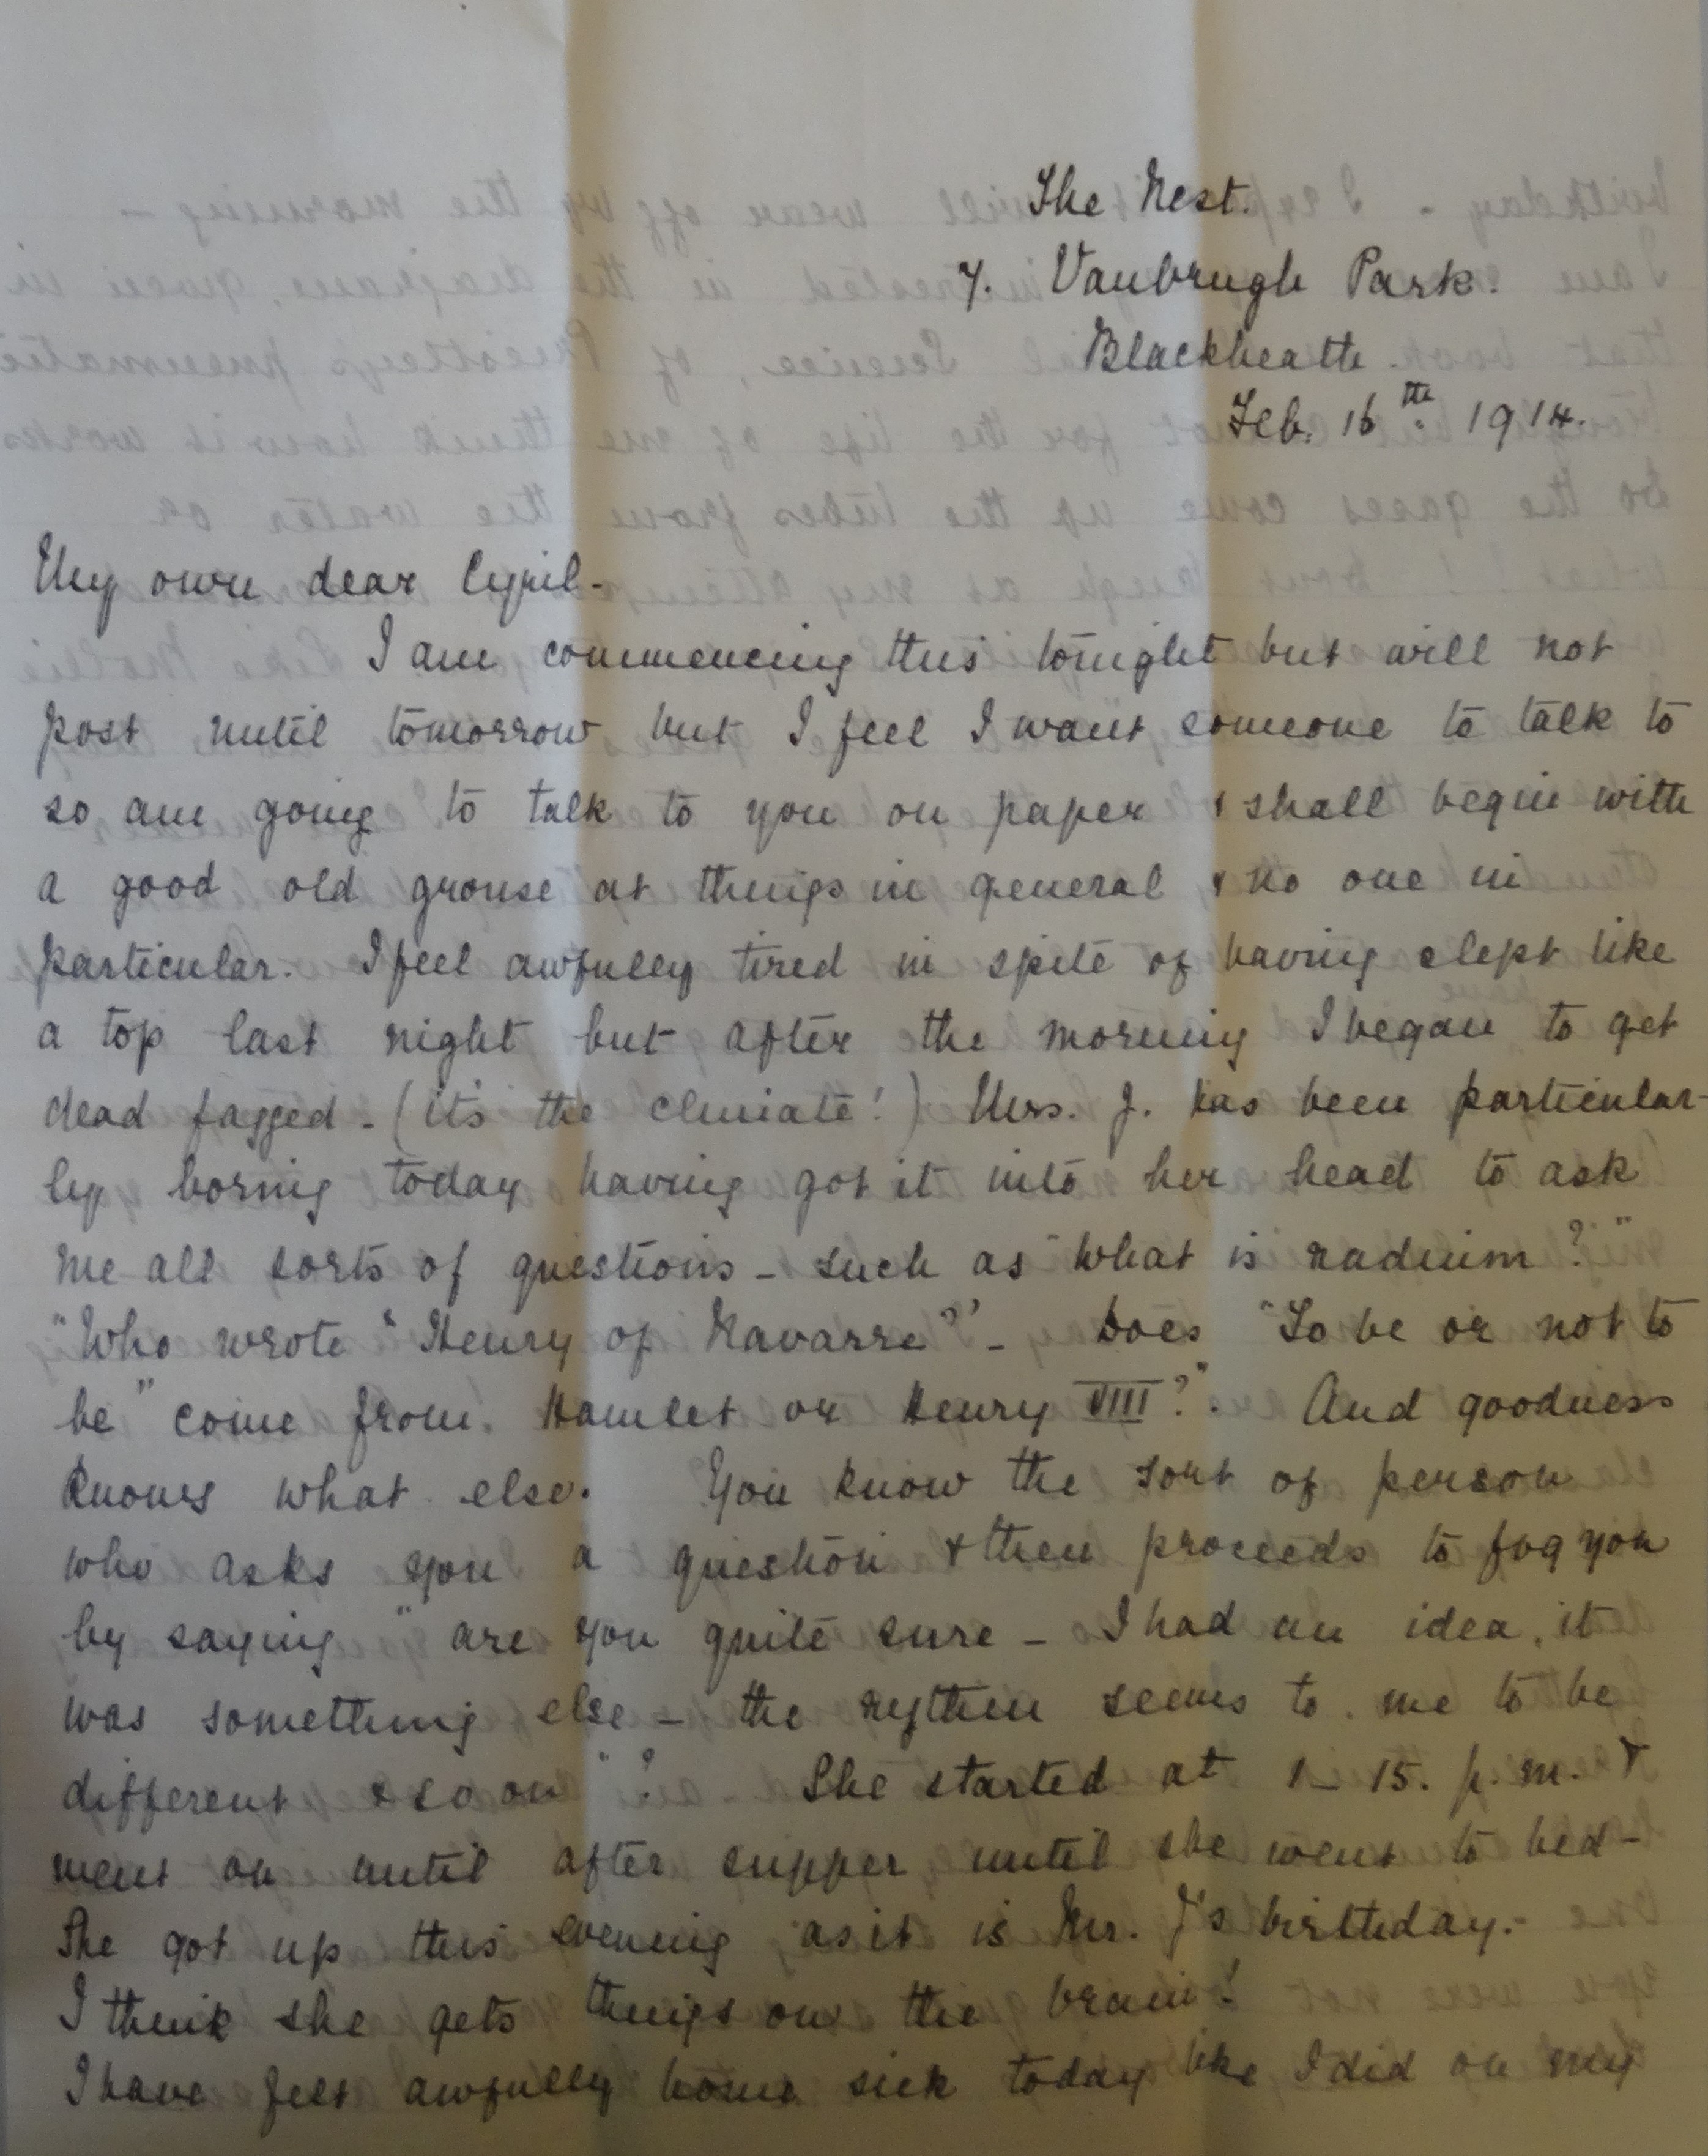 The Nest.
7. Vanbrugh Park.
Blackheath.
Feb. 16th. 1914.
My own dear Cyril -
I am commencing this tonight but will not
post until tomorrow but I feel I want someone to talk to
so am going to talk to you on paper & shall begin with
a good old grouse at things in general & no one in
particular. I feel awfully tired in spite of having slept like
a top last night but after the morning I began to get
dead fagged - (it's the climate!) Mrs. J. has been particular-
ly boring today having got it into her head to ask
me all sorts of questions - such as "What is radium?"
"Who wrote "Henry of Navarre"?' - Does "To be or not to
be" come from Hamlet or Henry VIII?". And goodness
knows what else. You know the sort of person
who asks you a question & then proceeds to fog you
by saying "are you quite sure - I had an idea it
was something else - the rythem seems to me to be
different & so on"? She started at 1-15. p.m. &
went on until after supper until she went to bed -
She got up this evening as it is Mr. J's birthday. -
I think she gets things on the brain!
I have felt awfully home sick today like I did on my